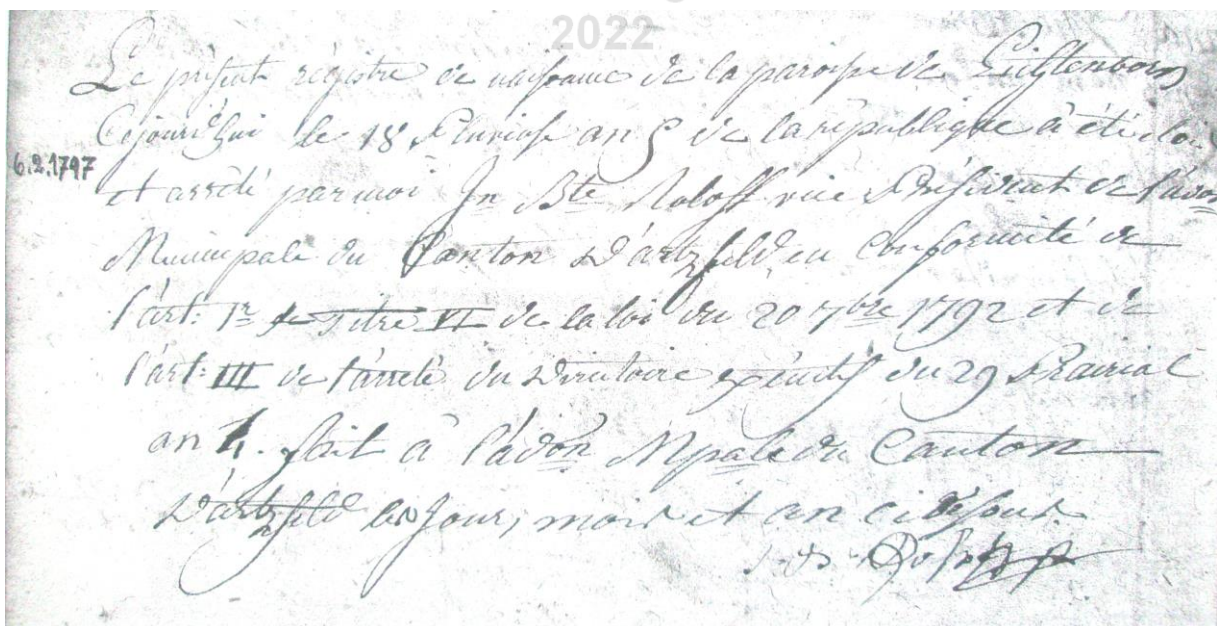 2022
Le présent régistre de naissance de la paroisse de Lichtenborn
Cejourd'hui le 18 Pluviose an 5 de la république à été clos
6.2.1797
et arrêté par moi Jn Bte Roloff vice Président de l'adon
Municipale du Canton D'artzfeld en Conformité de
l'art: 1r de Titre VI de la loi du 20 7bre 1792 et de
l'art: III de l'arrêté du Directoire exécutif du 29 Prairial
an 4. fait à l'adon Mpale du Canton
D'artzfeld les Jour, mois et an ci dessus.